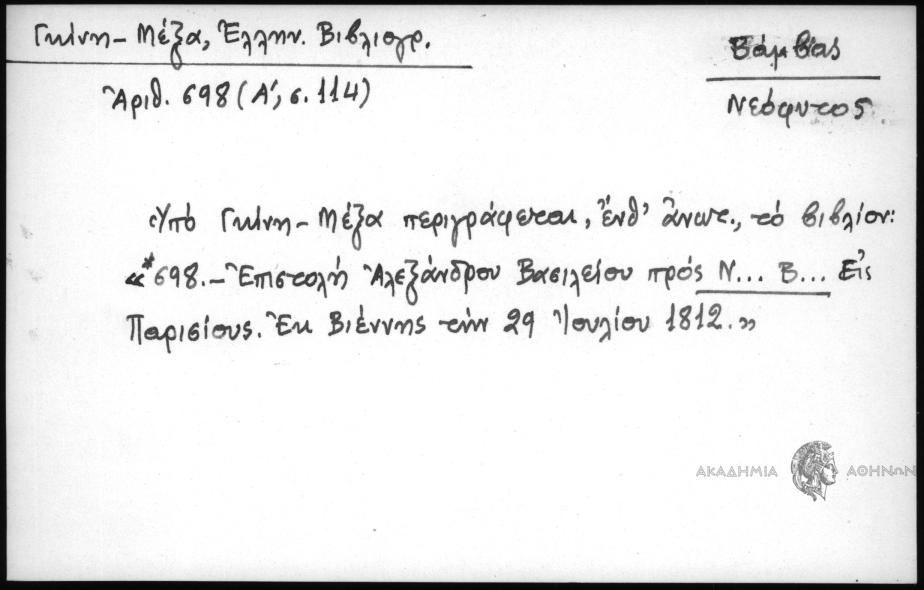 Γκίνη - Μέξα, Ἑλλην. Βιβλιογρ.
Ἀριθ. 698 (Α΄, σ. 114)
Βάμβας
Νεόφυτος
Ὑπό Γκίνη - Μέξα περιγράφεται, ἔνθ' ἀνωτ., τό βιβλίον:
«*698. - Ἐπιστολή Ἀλεξάνδρου Βασιλείου πρός Ν... Β... Εἰς
Παρισίους. Ἐκ Βιέννης τήν 29 Ἰουλίου 1812.»
ΑΚΑΔΗΜΙΑ ΑΘΗΝΩΝ